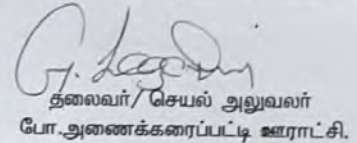 தலைவர்/ செயல் அலுவலர்
போ.அணைக்கரைப்பட்டி ஊராட்சி.